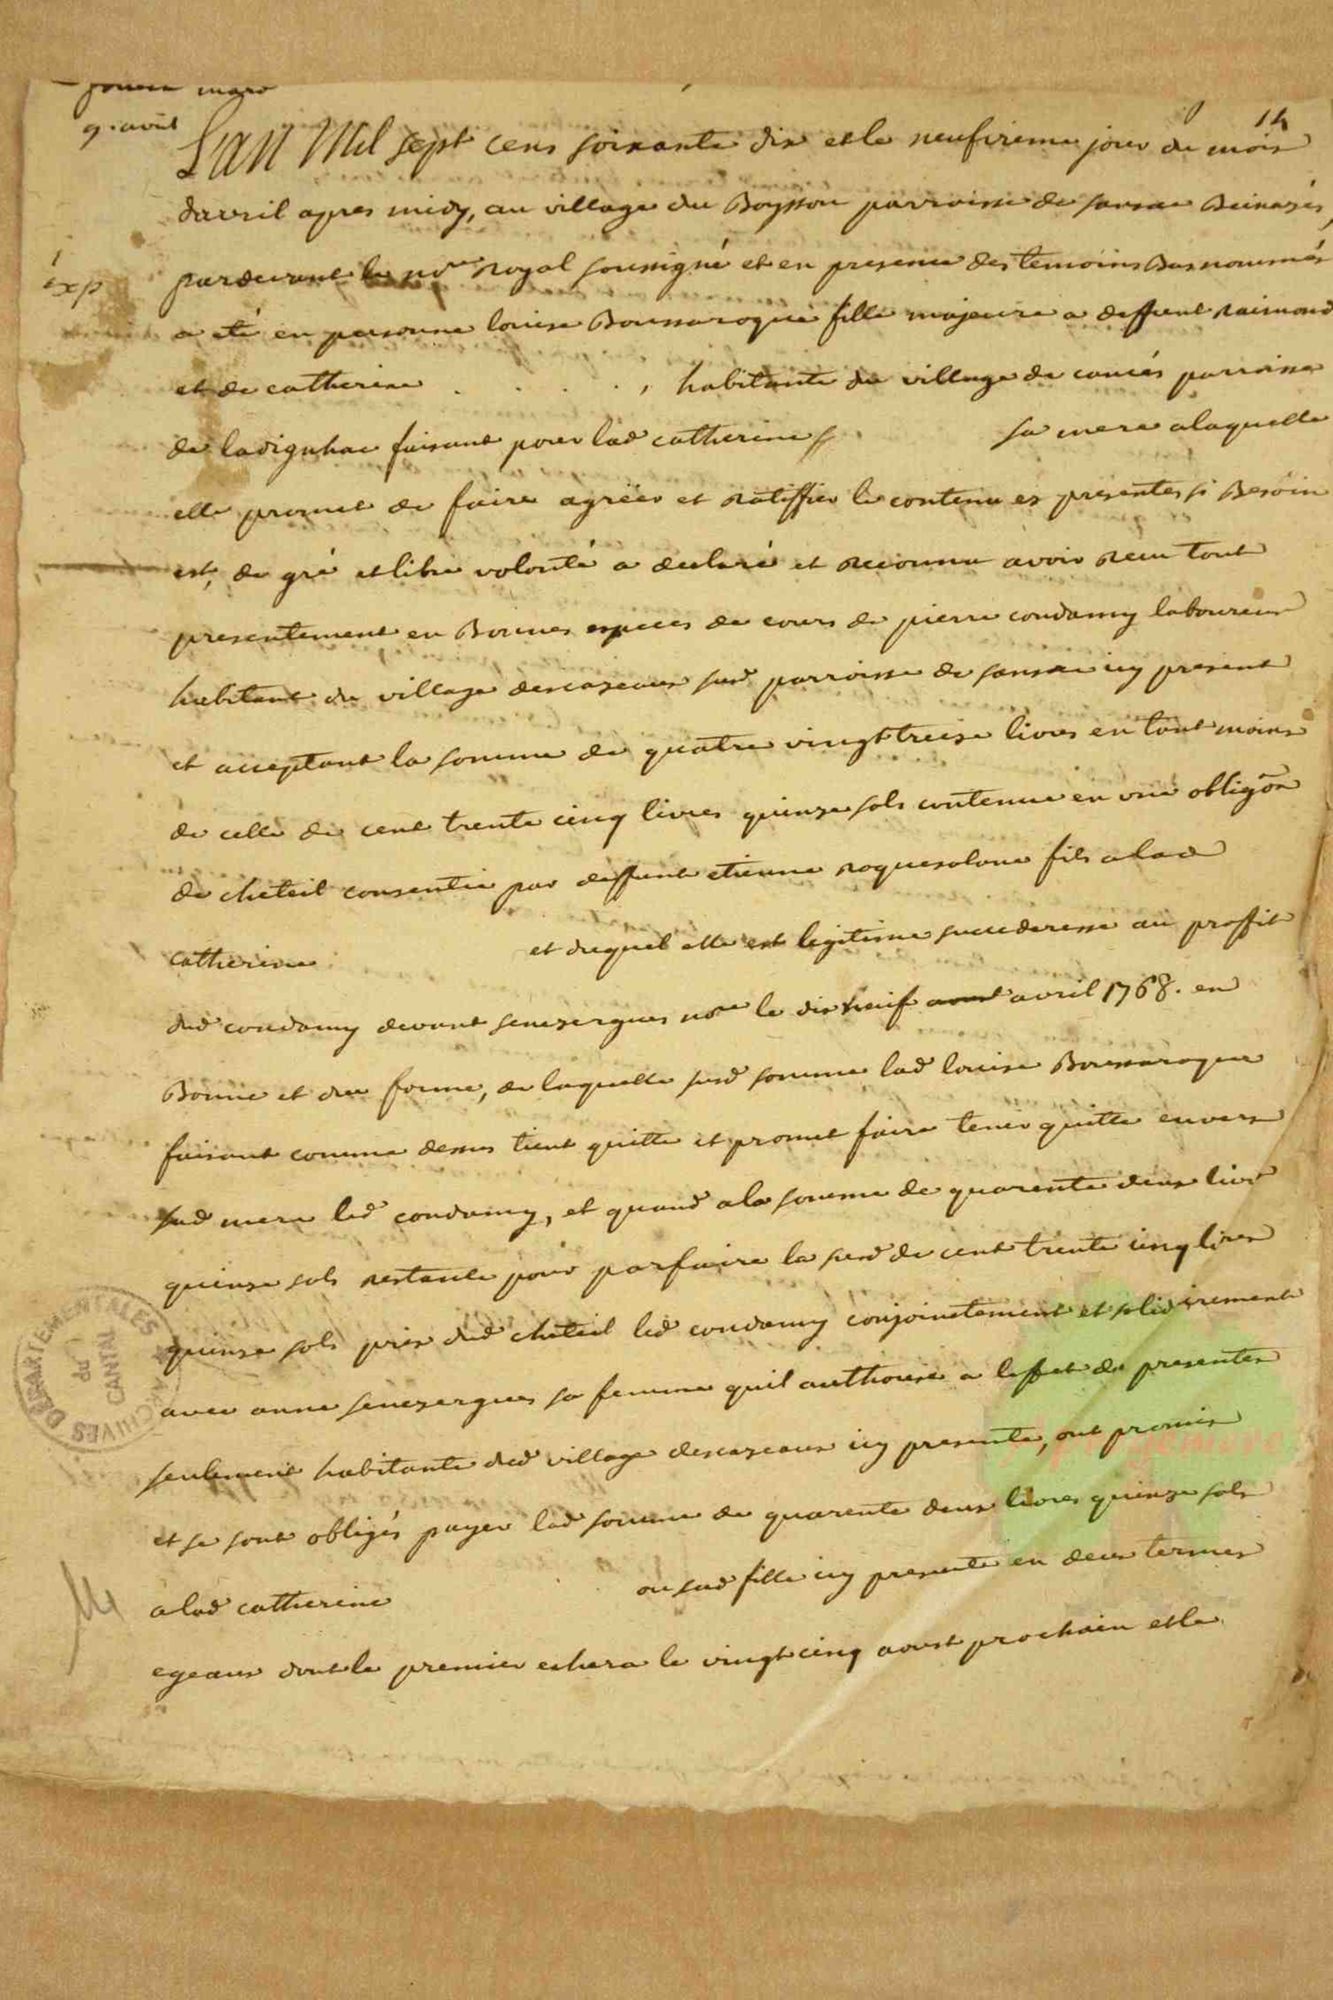 9. avril
14
L'an Mil sept cens soixante dix et le neufvieme jour du mois
davril apres midy, au village du Boysson parroisse de sansac Beinazes,
exp
pardevant le nore Royal soussigné et en presence des temoins Bas nommés
a eté en personne louise Boussaroque fille majeure a deffunt Raimond
et de catherine . . . . , habitante du village de canies parroisse
de ladignhac faisant pour lad catherine sa mere a laquelle
elle promet de faire agréer et Ratiffier le contenu es presentes si Besoin
est, de gré et libre volonté a declaré et Reconnu avoir Receu tout
presentement en Bonnes especes de cours de pierre condamy laboureur
habitant du village descazeaux susd parroisse de sansac icy present
et acceptant la somme de quatre vingt treise livres en tout moins
de celle de cent trente cinq livres quinze sols contenue en une obligõn
de cheteil consentie par deffunt etienne roquesolane fils a lad
catherine et duquel elle est legitime succederesse au proffit
dud condamy devant senezergues nore le dix neuf avril 1768. en
Bonne et due forme, de laquelle susd somme lad louise Boussaroque
faisant comme dessus tient quitte et promet faire tenir quitte envers
sad mere led condamy, et quand a la somme de quarente deux livr
quinze sols restante pour parfaire la susd de cent trente cinq livres
quinze sols prix dud cheteil led condamy conjointement et solidairement
avec anne senezergues sa femme quil authorise a leffet des presentes
seulement habitante dud village descazeaux icy presente, ont promis
et se sont obligés payer lad somme de quarente deux livres quinze sols
a lad catherine ou sad fille icy presente en deux termes
egeaux dont le premier echera le vingt cinq aoust prochain et le
ARCHIVES DÉPARTEMENTALES
DU
CANTAL